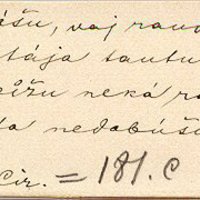 ēšu, vaj rauc
tāja tautu
ežu nekā ra
da nedabūšu
Cir. = 181. C